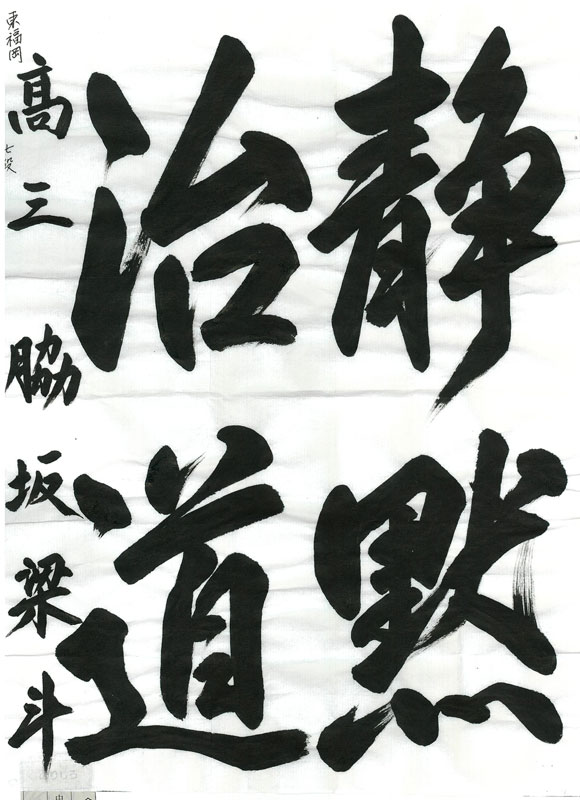 静默
治道
東福岡
高三 脇坂梁斗
七段